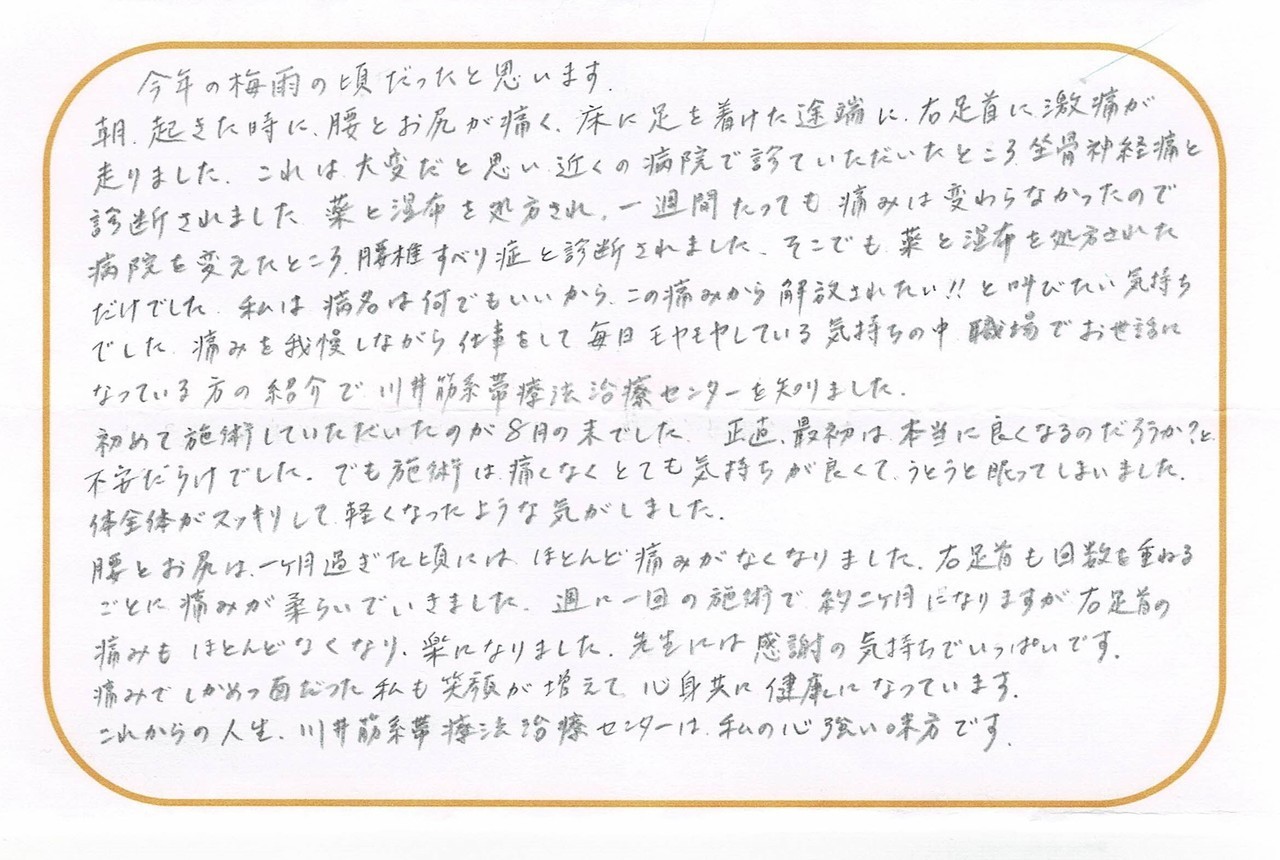 今年の梅雨の頃だったと思います.
朝.起きた時に.腰とお尻が痛く.床に足を着けた途端に.右足首に激痛が
走りました.これは大変だと思い.近くの病院で診ていただいたところ.坐骨神経痛と
診断されました.薬と湿布を処方され.一週間たっても痛みは変わらなかったので
病院を変えたところ.腰椎すべり症と診断されました.そこでも薬と湿布を処方された
だけでした.私は病名は何でもいいから.この痛みから解放されたい!!と叫びたい気持ち
でした.痛みを我慢しながら仕事をして毎日モヤモヤしている気持ちの中.職場でお世話に
なっている方の紹介で川井筋系帯療法治療センターを知りました.
初めて施術していただいたのが8月の末でした.正直.最初は本当に良くなるのだろうか?と
不安だらけでした.でも施術は痛くなくとても気持ちが良くて.うとうと眠ってしまいました.
体全体がスッキリして軽くなったような気がしました.
腰とお尻は.一ヶ月過ぎた頃には.ほとんど痛みがなくなりました.右足首も回数を重ねる
ごとに痛みが柔らいでいきました.週に一回の施術で約二ヶ月になりますが右足首の
痛みもほとんどなくなり.楽になりました.先生には感謝の気持ちでいっぱいです.
痛みでしかめっ面だった私も笑顔が増えて.心身共に健康になっています.
これからの人生.川井筋系帯療法治療センターは.私の心強い味方です.